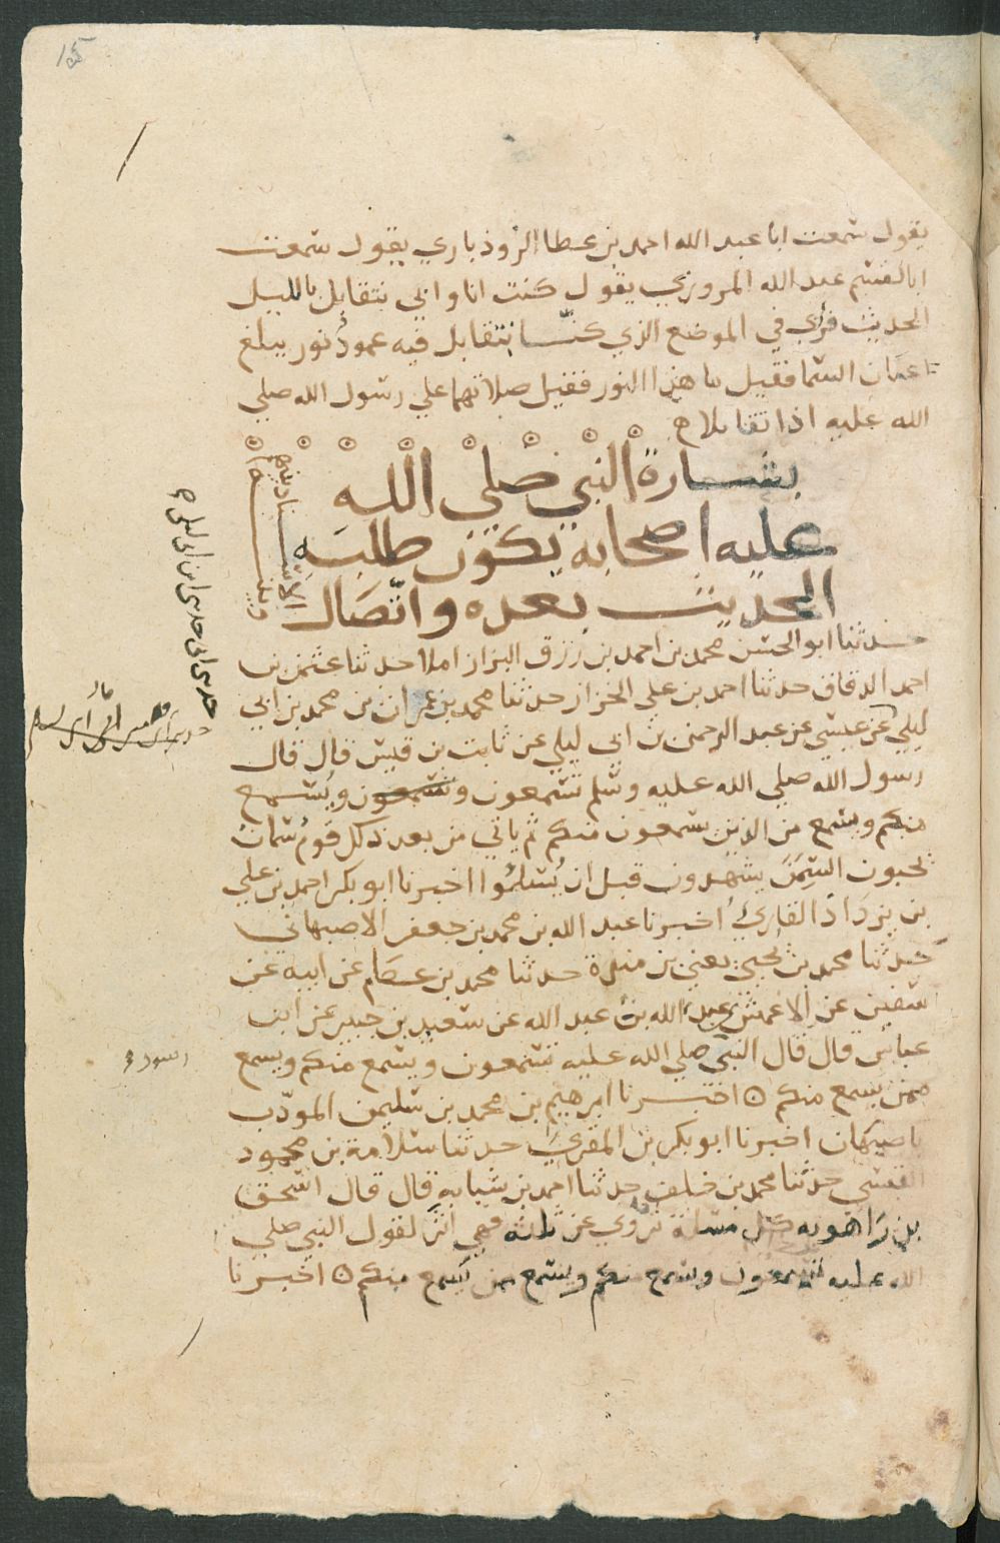 يقول سمعت ابا عبد الله احمد بن عطا الروذباري يقول سمعت
ابا القسم عبد الله المروزي يقول كنت انا وابي نتقابل بالليل
الحديث فرأي في الموضع الذي كنا نتقابل فيه عمود نور يبلغ
عنان السما فقيل ما هذا النور فقيل صلاتهما علي رسول الله صلي
الله عليه اذا تقابلا
بشارة النبي صلي الله
عليه اصحابه بكون طلبة
الحديث بعده واتصال
الاسناد بينهم
وبينه
حدثنا ابو الحسن محمد بن احمد بن رزق البزاز املا حدثنا عثمن بن
احمد الدقاق حدثنا احمد بن علي الخزاز حدثنا محمد بن عمران بن محمد بن ابي
ليلي عن عيسي عن عبد الرحمن بن ابي ليلي عن ثابت بن قيس قال قال
رسول الله صلي الله عليه وسلم تسمعون وتسمعون ويسمع
منكم ويسمع من الذين يسمعون منكم ثم ياتي من بعد ذلك قوم سمان
يحبون السمن يشهدون قبل ان يسئلوا اخبرنا ابو بكر احمد بن علي
بن يزداذ القاريُ اخبرنا عبد الله بن محمد بن جعفر الاصبهاني
حدثنا محمد بن يحيي يعني بن مندة حدثنا محمد بن عصام عن ابيه عن
سفين عن الاعمش عن عبد الله بن عبد الله عن سعيد بن جبير عن ابن
عباس قال قال النبي صلي الله عليه تسمعون ويسمع منكم ويسمع
ممن يسمع منكم ⊙ اخبرنا ابرهيم بن محمد بن سليمن المودب
باصبهان اخبرنا ابو بكر بن المقري حدثنا سلامة بن محمود
القيسي حدثنا محمد بن خلف حدثنا احمد بن شبابه قال قال اسحق
بن راهويه كل مسلة تروي عن ثلثه فهي اثر لقول النبي صلي
الله عليه تسمعون ويسمع منكم ويسمع ممن يسمع منكم ⊙ اخبرنا
حدثني ابي حدثني ابن ابي ليلي